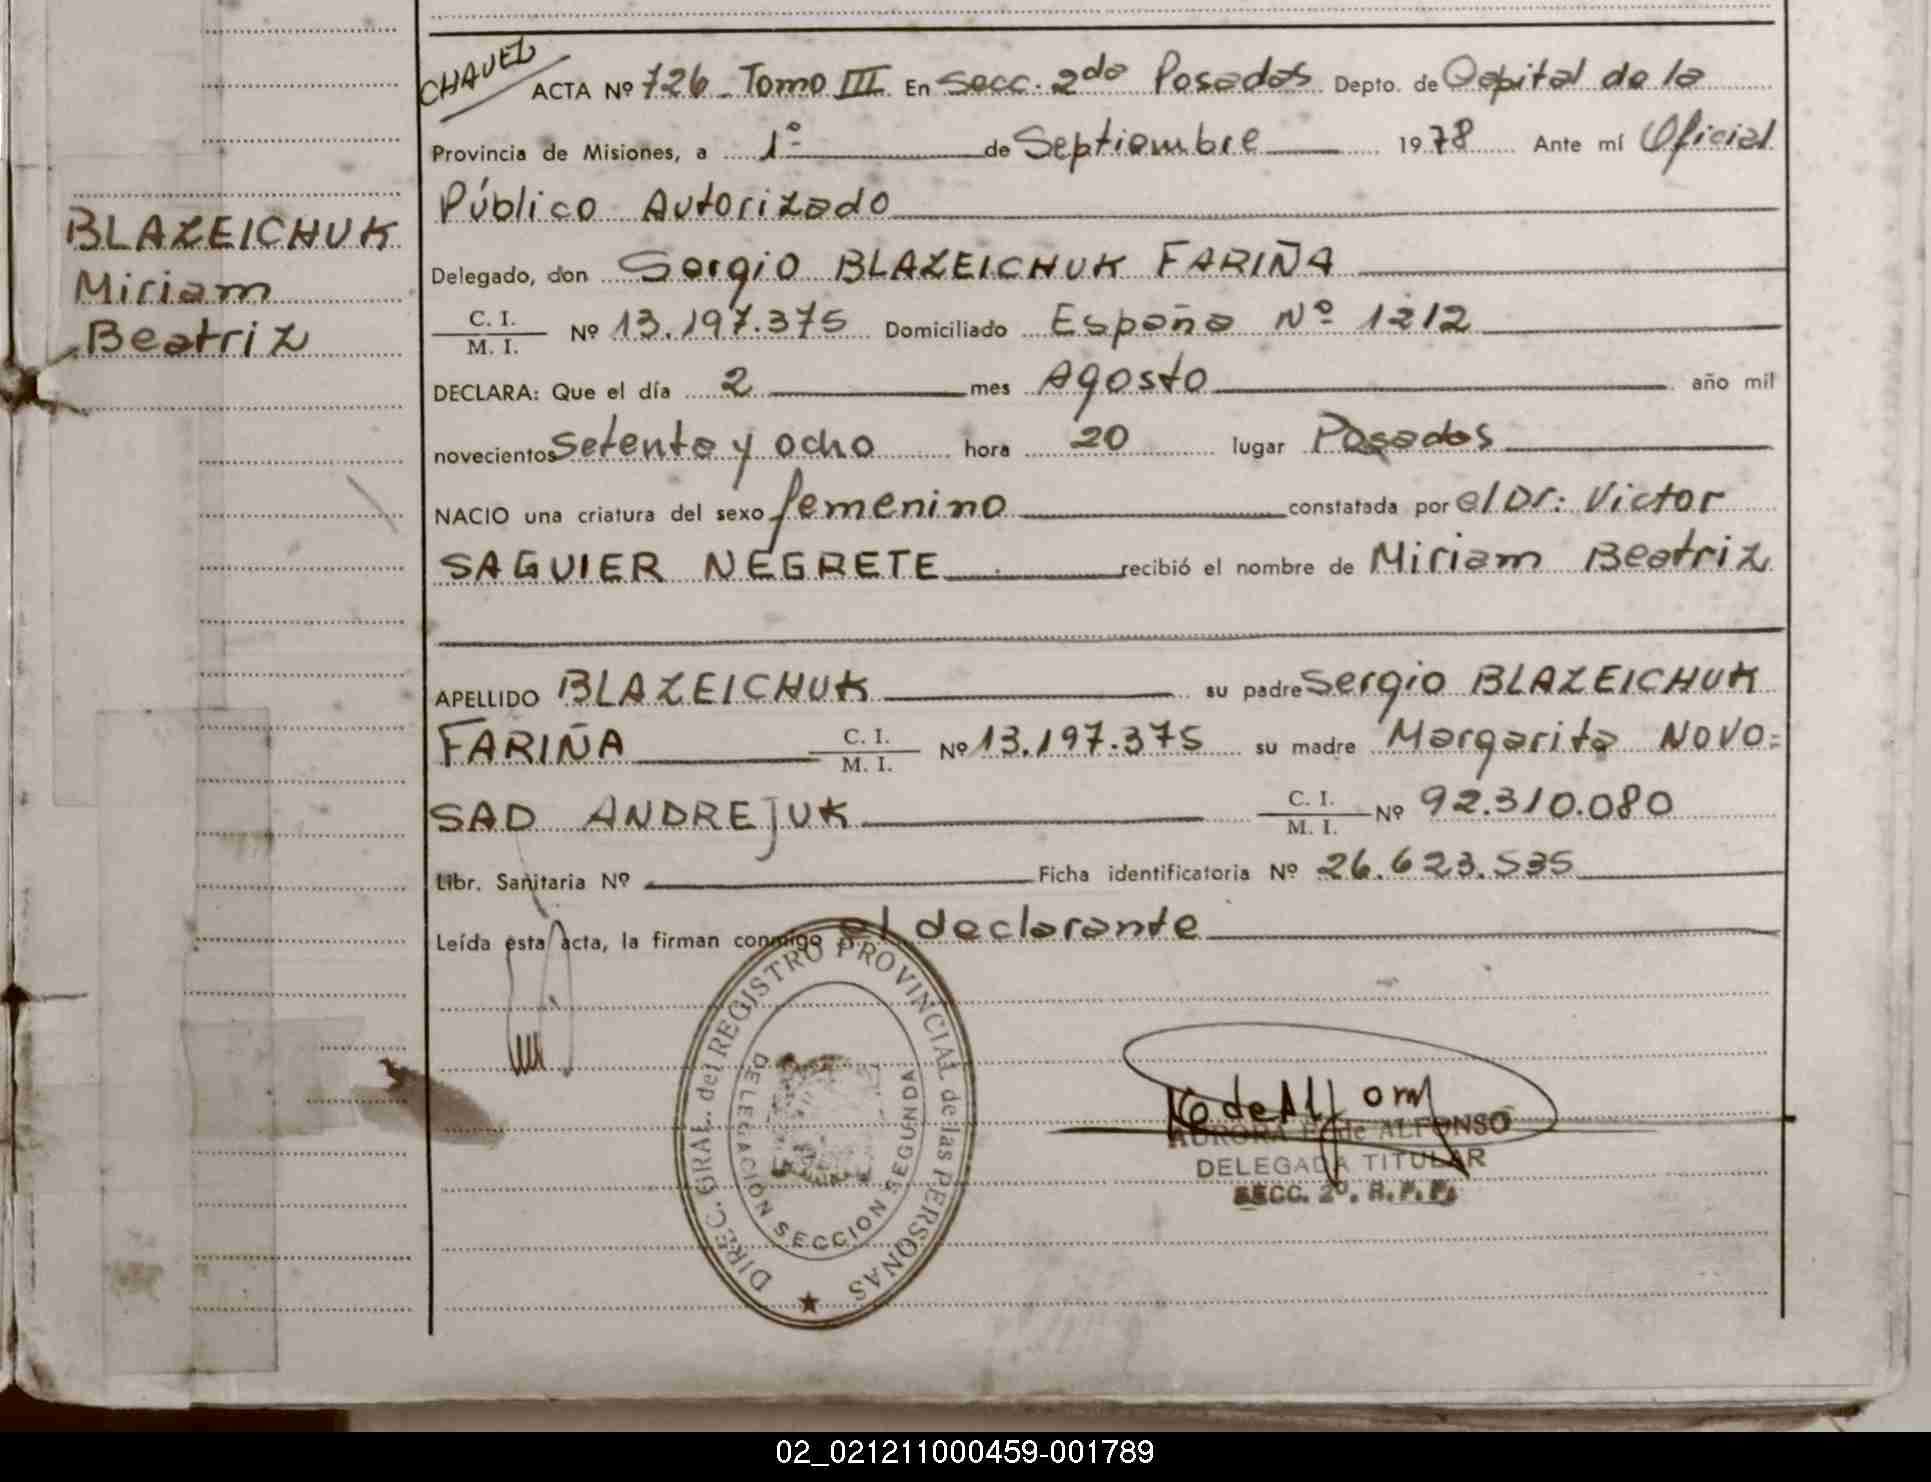 CHAVEZ
ACTA Nº 726 Tomo III En Secc. 2da Posadas Depto. de Capital de la
Provincia de Misiones, a 1º de Septiembre 1978 Ante mí Oficial
Público Autorizado
BLAZEICHUK
Miriam
Beatriz
Delegado, don Sergio BLAZEICHUK FARIÑA
C. I.
M. I. Nº 13.197.375 Domiciliado España Nº 1212
DECLARA: Que el día 2 mes Agosto año mil
novecientos Setenta y ocho hora 20 lugar Posadas
NACIO una criatura del sexo femenino constatada por el Dr: Victor
SAGUIER NEGRETE recibió el nombre de Miriam Beatriz
APELLIDO BLAZEICHUK su padre Sergio BLAZEICHUK
FARIÑA C. I. M. I. Nº 13.197.375 su madre Margarita NOVO=
SAD ANDREJUK C. I. M. I. Nº 92.310.080
Libr. Sanitaria Nº Ficha identificatoria Nº 26.623.535
Leída esta acta, la firman conmigo el declarante
DIREC. GRAL. del REGISTRO PROVINCIAL de las PERSONAS
DELEGACIÓN SECCION SEGUNDA
AURORA de ALFONSO
DELEGADA TITULAR
SECC. 2º. R.P.P.
02_021211000459-001789